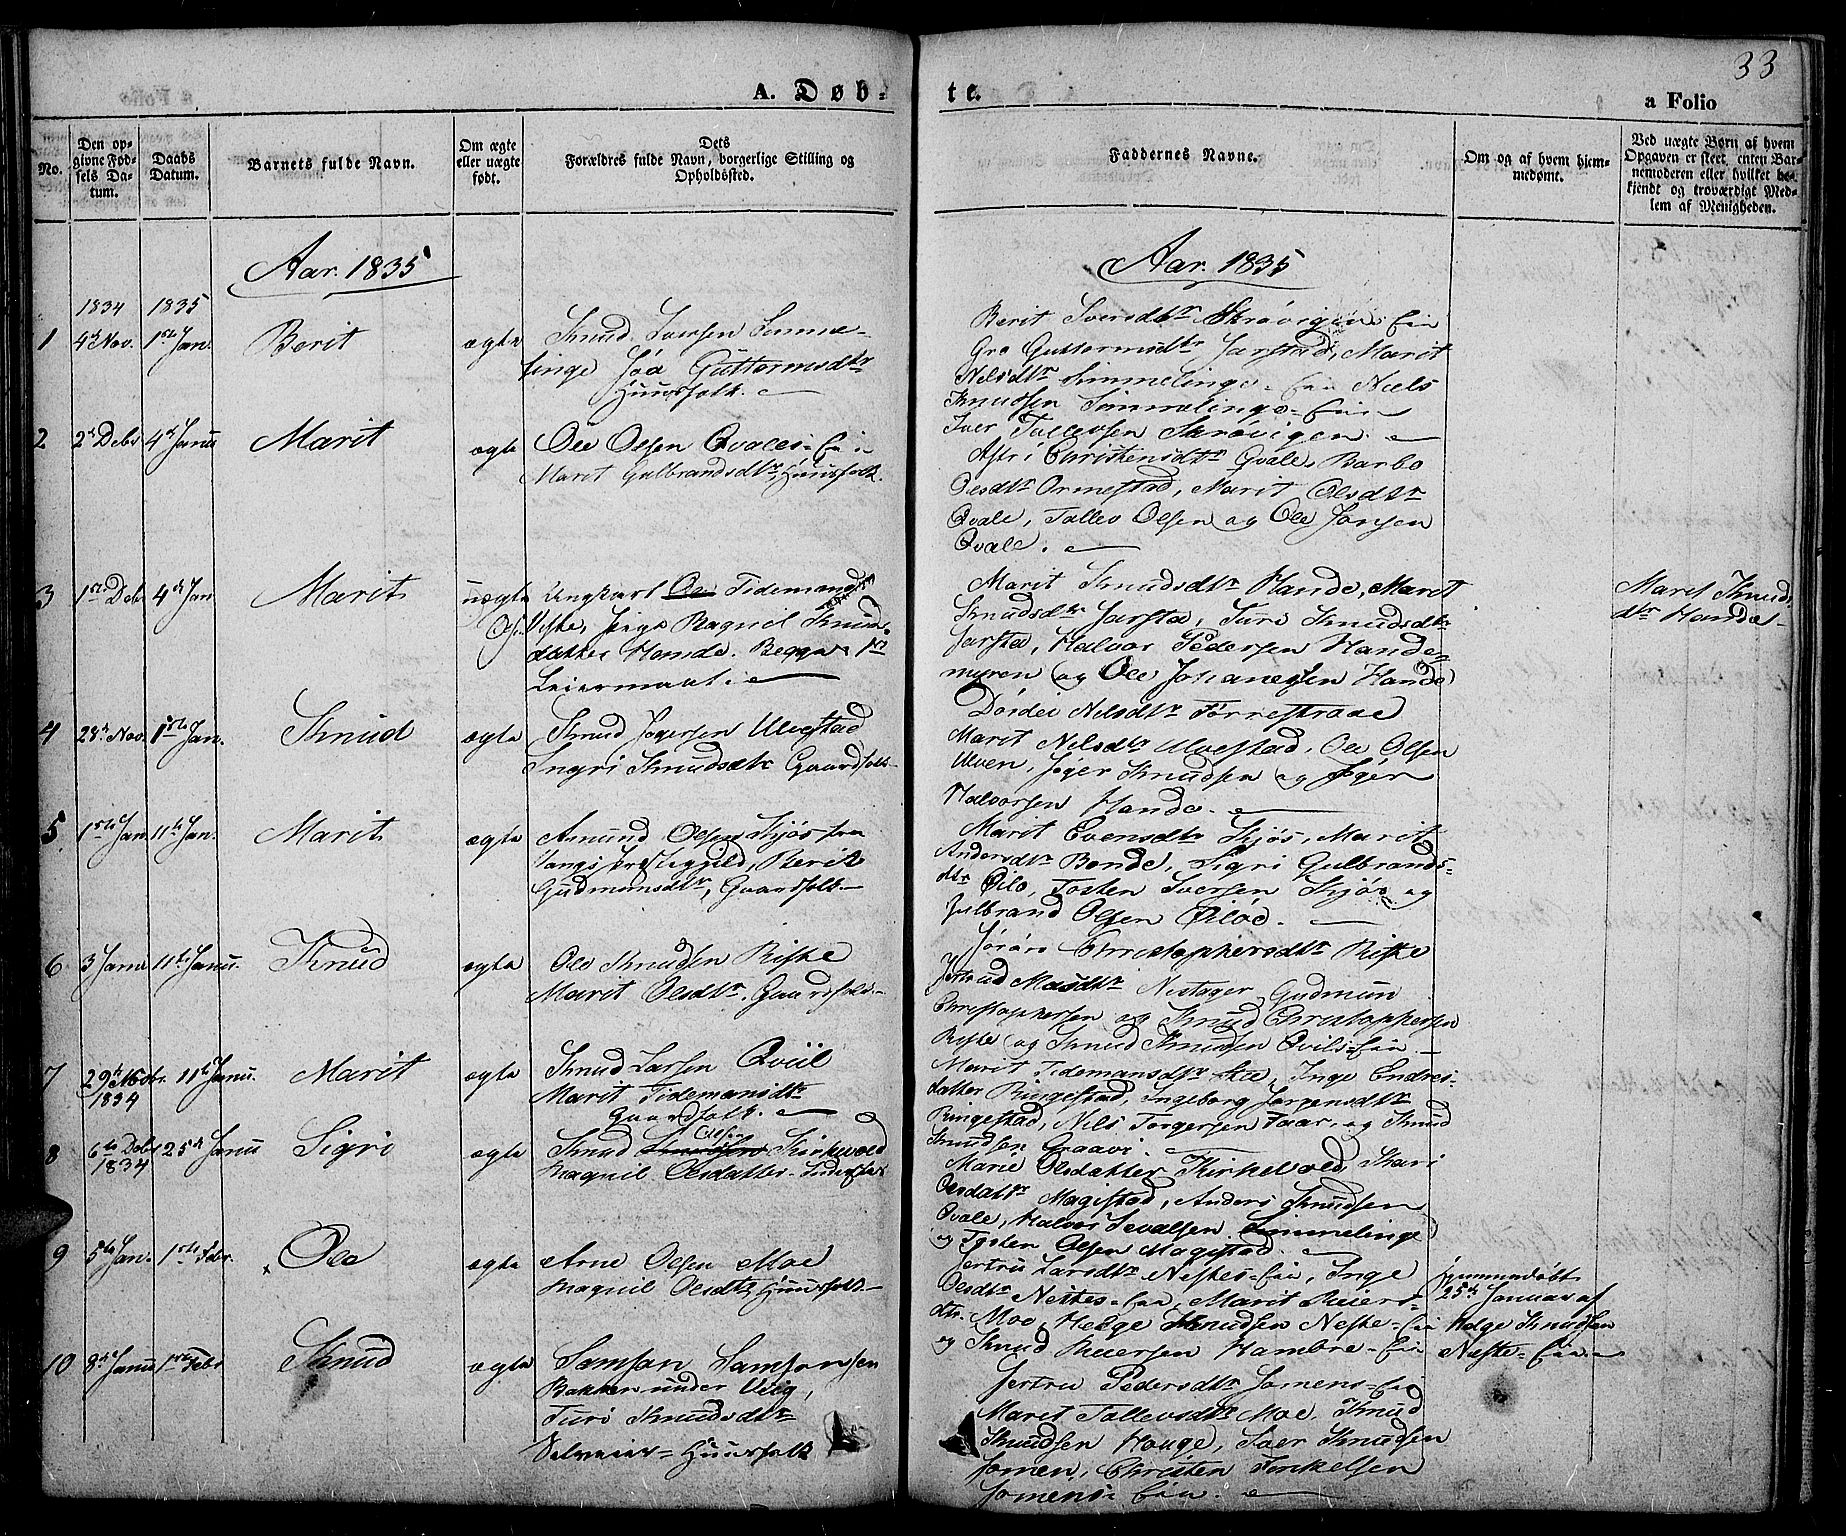 33
A. Døb-
te.
a Folio
No.
Den op-
givne Fød-
sels Da-
tum.
Daabs
Datum.
Barnets fulde Navn.
Om ægte
eller uægte
født.
Dets
Forældres fulde Navn, borgerlige Stilling og
Opholdssted.
Faddernes Navne.
Om og af hvem hjem-
medømt.
Ved uægte Børn af hvem
Opgaven er skeet, enten Bar-
nemoderen eller hvilket be-
kjendt og troværdigt Med-
lem af Menigheden.
Aar. 1835
Aar. 1835
1834 1835
1 4de Nov. 1ste Jan. Berit ægte Knud Iversen Semme-
linge Jøa Guttormsdtr
Huusfolk.
Berit Iversdtr Skrøvigen
Gro Guttormsdtr Jarstad, Marit
Nelsdtr Simmelinge-Eie Niels
Knudsen Simmelinge-Eie
Iver Tollevsen Skrøvigen.
2 2d Debr 4de Janu Marit ægte Ole Olsen Qvales-Eie
Maret Gulbrandsdtr, Huusfolk.
Astri Christensdtr Qvale, Barbo
Olsdtr Ormestad, Marit Olsdtr
Qvale, Tollev Olsen og Ole Jonsen
Qvale.
3 1ste Debr 4de Jan Marit uægte Ungkarl Ole Tidemand
Viste, Pige Raqnil Knuds-
datter Hande. Begges 1ste
Leiermaal.
Marit Knudsdtr Hande, Marit
Knudsdtr Jarstad, Turi Knudsdtr
Jarstad, Halvor Pedersen Hande-
myren og Ole Johannesen Hande
Maret Knuds
dtr Hande
4 28de Nov. 1ste Jan. Knud ægte Knud Jøgersen Ulvestad
Ingri Knudsdtr Gaardfolk
Dordei Nelsdtr Førrestraae
Marit Nelsdtr Ulvestad, Ole Olsen
Ulven, Jøger Knudsen og Jøger
Halvorsen Hande.
5 1ste Jan 11te Jan. Marit ægte Amund Olsen Kjøs fra
Vangs Prestegjeld, Berit
Gudmunsdtr, Gaardfolk
Marit Evensdtr Kjøs, Marit
Andersdtr Bonde, Sigri Gulbrands-
dtr Øilo, Tosten Iversen Kjøs og
Gulbrand Olsen Øiloe.
6 3 Janu 11te Janu. Knud ægte Ole Knudsen Riste
Marit Olsdtr. Gaardfolk
Jøran Christophersdtr Riste
Jertrud Masdtr Nestager Gudmun
Christophersen og Knud Christophersen
Riste og Knud Knudsen Qvils-Eie
7 29de Nobr. 11te Janu. Marit ægte Knud Larsen Qviil
1834 Marit Tidemansdtr
Gaardfolk.
Marit Tidemansdtr Lee, Inge Endres-
datter Ringestad, Ingeborg Jørgensdtr
Ringestad, Nils Torgersen Faar, og Knud
Knudsen Graavi.
8 6te Debr 25de Janu Sigri ægte Knud Olsen Kirkevold
1834 Raqnil Olsdatter
Marie Olsdatter Kirkevold, Kari
Olsdatr Magistad, Anders Knudsen
Qvale, Halvor Sevalsen Simmelinge
og Tosten Olsen Magistad.
9 5te Jan. 1ste Febr. Ole ægte Arne Olsen Moe
Raqnil Olsdtr Huusfolk
Jertru Larsdtr Neste-Eie, Inge
Olsdtr Nestes-Eie, Marit Reiers-
dtr. Moe, Helge Knudsen Neste-Eie
og Knud Reiersen Hambre-Eie
hjemmedøbt
25de Januar af
Helge Knudsen
Neste-Eie
10 8de Janu 1ste Febr Knud ægte Samson Samsonsen
Bakken under Viig,
Turi Knudsdtr
Huusfolk
Jertru Pedersdtr Jomens-Eie
Maret Tollevsdtr Moe, Knud
Knudsen Houge, Iver Knudsen
Jomen, Christen Torkelsen
Jomens-Eie.